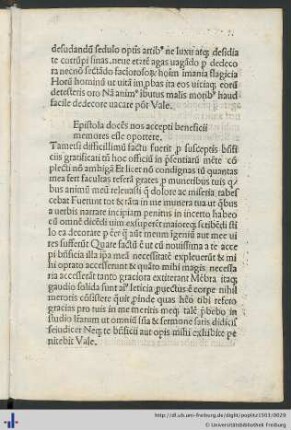 desudandū sedulo optis artibꝰ ne luxu atqꝫ desidia
te corrūpi sinas. neue etate agas uagādo p dedeco
ra necnō sectādo faciorosoꝝ hoīm imania flagicia
Horū hominū ut uitā impbas ita eos uitiaqꝫ eorū
detesteris oro Nā animꝰ ibutus malis moribꝰ haud
facile dedecore uacare pōt Vale.
Epistola docēs nos accepti beneficii
memores esse oportere.
Tametsi difficillimū factu fuerit p susceptis bn̄fi
ciis gratificari tū hoc officiū in psentiarū mēte cō
plecti nō ambigā Et licet nō condignas tū quantas
mea fert facultas referā grates p muneribus tuis qꝫ
bus animū meū releuasti q̄ dolore ac miseria tabes
cebat Fuerunt tot & tāta in me munera tua ut qͥbus
a uerbis narrare incipiam penitus in incerto habeo
cū omnē dicēdi uim exsuperēt
lo ea decorare p eēt q̄ aūt meum igeniū aut mee ui
res sufferūt Quare factū ē ut cū nouissima a te acce
pi bn̄ficia illa ipa meā necessitatē expleuerūt & mi
hi optato accesserunt & quāto mihi magis necessa
ria accesserāt tanto graciora exciterant Mēbra itaqꝫ
gaudio solida sunt aīꝰ leticia puectus ē corpe nihil
meroris cōsistere quit pinde quas hēo tibi refero
gracias pro tuis in me meritis meqꝫ talē pbebo in
studio lrarum ut omnis ista & sermone satis didicisse
seiudicer Neqꝫ te bn̄ficii aut opis mihi exhibite pe
nitebit Vale.
http://dl.ub.uni-freiburg.de/diglit/poplit1503/0029
© Universitätsbibliothek Freiburg